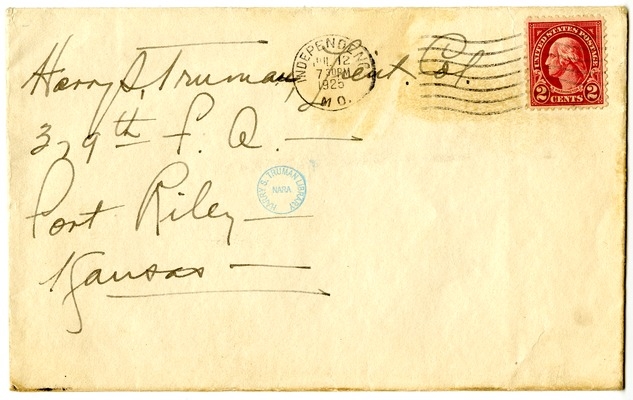 Harry S. Truman, Lieut. Col.
379th F. A. —
Fort Riley —
Kansas —
INDEPENDENCE
JUL 12
7 30 PM
1925
MO.
UNITED STATES POSTAGE
2 CENTS 2
HARRY S. TRUMAN LIBRARY
NARA